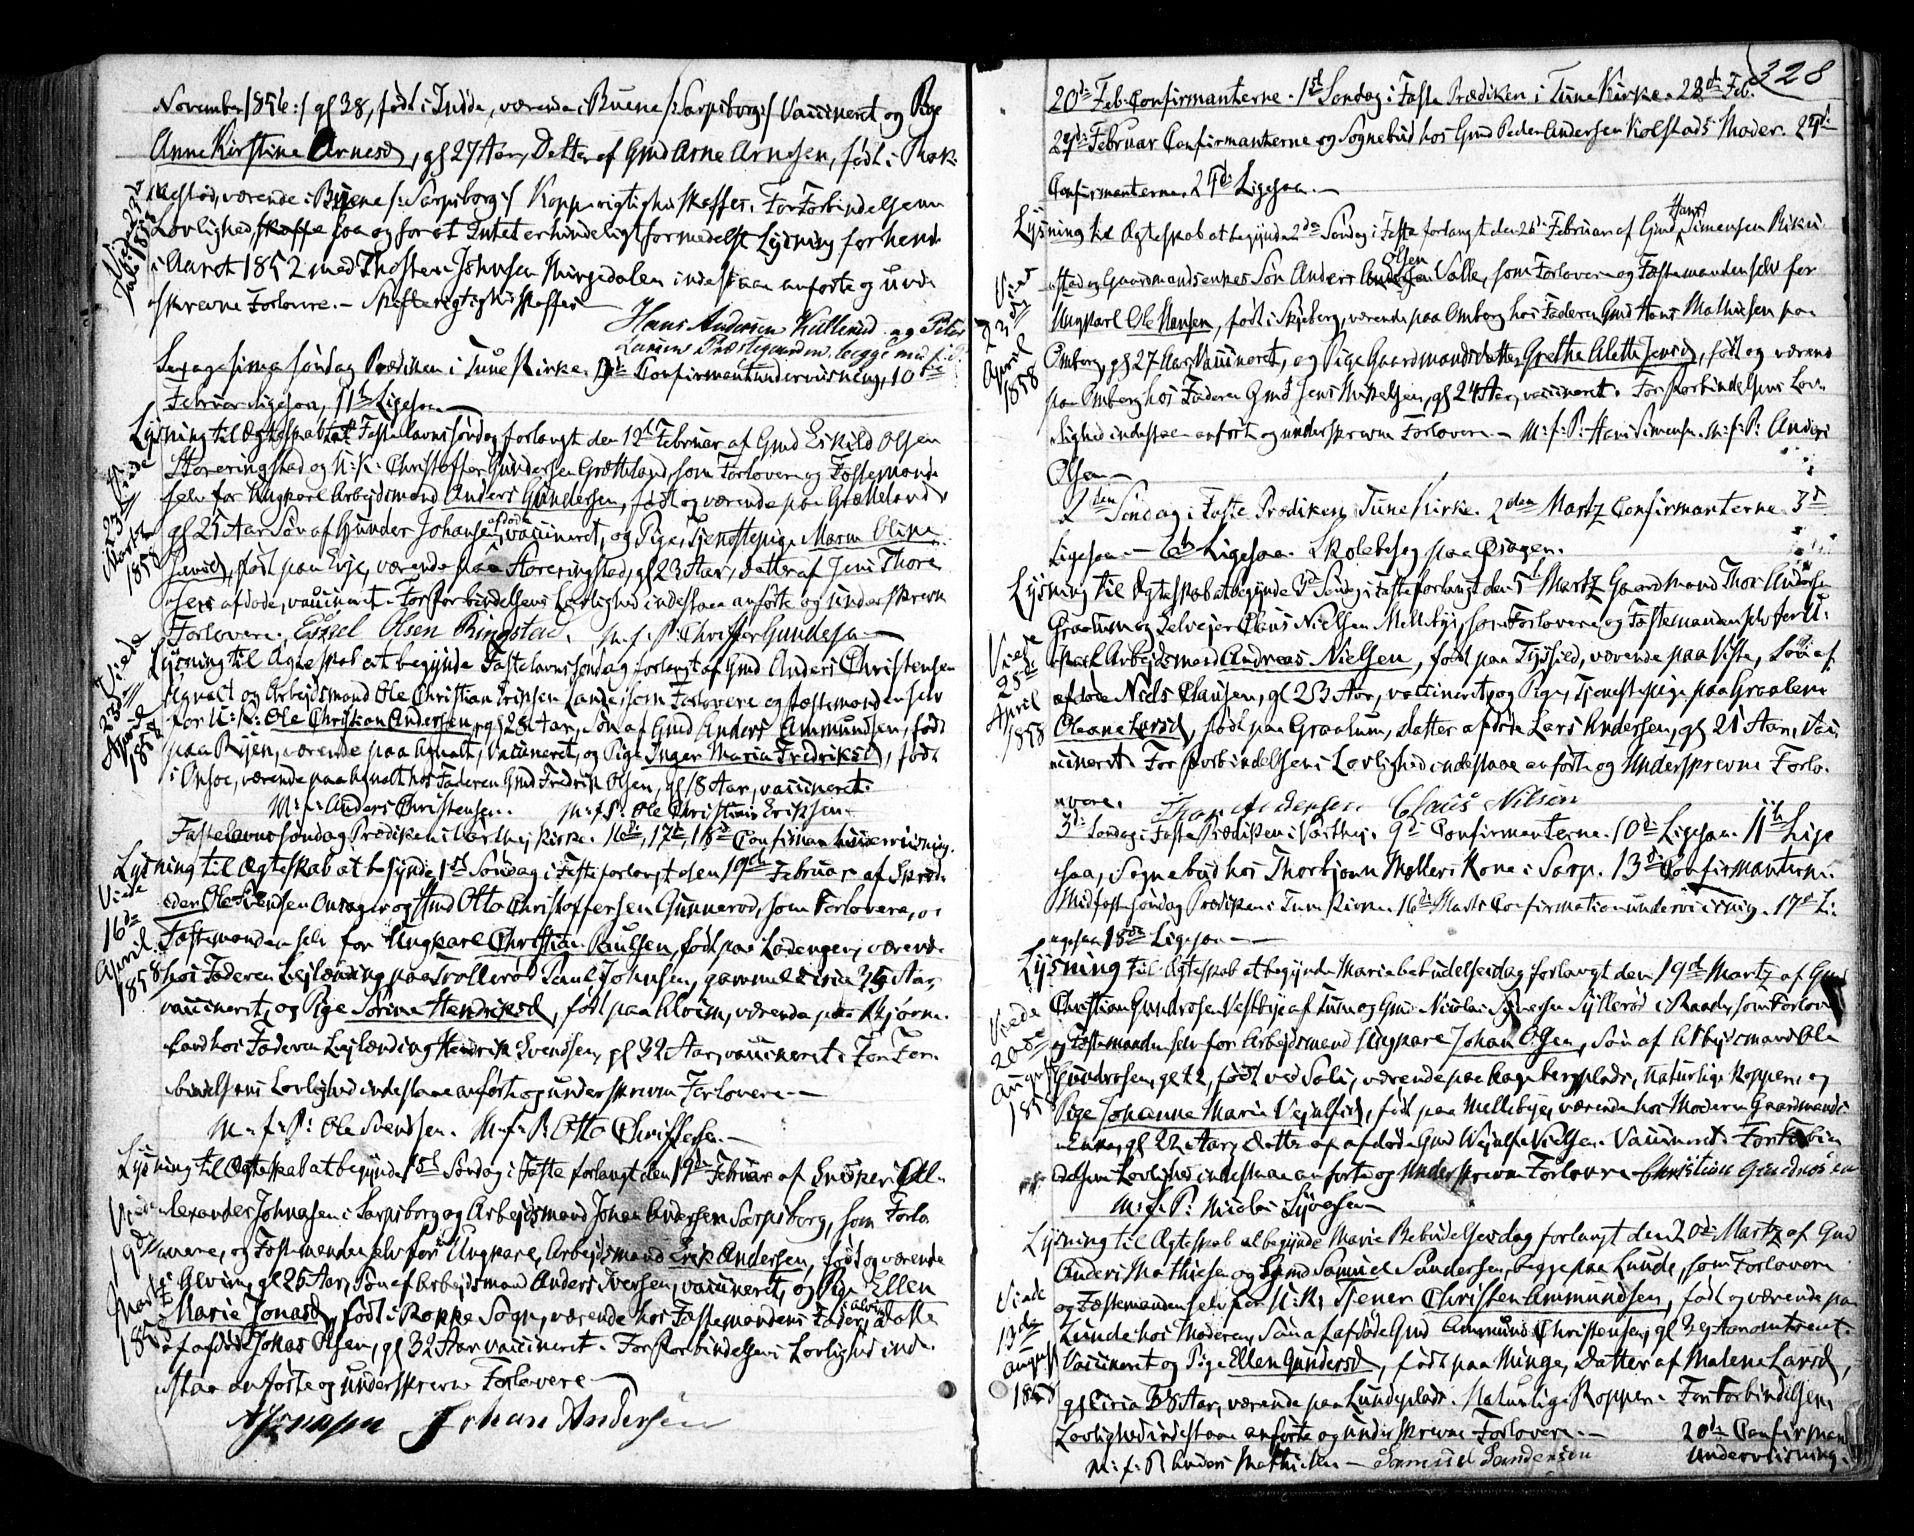 November 1856:/ gl 38, født i Indde, værende i Buene /:Sarpsborg:/ Vaccineret, og Pige
Anne Kirstine Arnesd, gl 27 Aar, Datter af Gmd Arne Arnesen, født i Rak-
kestad, værende i Buene /:Sarpsborg:/ Koppe rigtighed skaffes. For Forbindelsens
Lovlighed skaffe saa og for at Intet er hinderligt formedelst Lysning for hende
i Aaret 1852 med Thosten Johnsen indestaae anførte og unde
skrevne Forlovere. - Skifterigtighed skaffes
Hans Andersen Kullerud og Peter
Larsen Præstegaarden begge med f. P.
Sexagesima søndag Prædiken i Tune Kirke. 9de Confirmantundervisning, 10de
Februar Ligesaa, 11te Ligesaa
Lysning til Ægteskab at Fastelavnssøndag forlangt den 12te Februar af Gmd Eskild Olsen
Storeringstad og U: K: Christoffer Gundersen Grætteland, som Forlovere og Fæstemanden
selv for Ungkarl Arbejdsmand Anders Gundersen, født og værende paa Grætteland
gl 25 Aar Søn af Gunder Johansen afdøde, vaccineret, og Pige, Tjenestepige Maren Oline
Jensd, født paa Evje, værende paa Storeringstad, gl 23 Aar, Datter af Jens Thore
sens afdøde, vaccineret. For Forbindelsens Lovlighed indestaae anførte og underskrevne
Forlovere. Eskel Olsen Ringstad. m. f. P: Christoffer Gundesen
Viede 23de Martz 1858
Lysning til Ægteskab at begynde Fastelavnssøndag forlangt af Gmd Anders Christensen
Agnalt og Arbejdsmand Ole Christian Eriksen Lande, som Forlovere og Fæstemanden selv
for U: K: Ole Christian Andersen, gl 28 Aar, Søn af Gmd Anders Ammundsen, født
paa Ryen, værende paa Agnalt, Vaccineret, og Pige Inger Maria Fredriksd, født
i Onsøe, værende paa Agnalt hos Faderen Gmd Fredrik Olsen, gl 18 Aar, vaccineret.
M: f: Anders Christensen. M: f: P: Ole Christian Eriksen
Viede 23de April 1858
Fastelavnssøndag Prædiken i Varteig Kirke. 16de, 17de, 18de Confirmantundervisning.
Lysning til Ægteskab at begynde 1ste Søndag i Faste forlangt den 19de Februar af
Ole Svendsen Onsager og Gmd Otto Christoffersen Gunnerød, som Forlovere, og
Fæstemanden selv for Ungkarl Christian Paulsen, født paa Lodengen, værende
hos Faderen Lejlænding paa Trollerød Paul Johnsen, gammel circa 34 Aar,
vaccineret, og Pige Sørine Hendriksd, født paa Kloim, værende paa Kjørn-
land hos Faderen Lejlænding Hendrik Svendsen, gl 32 Aar, vaccineret. For For-
bindelsens Lovlighed indestaae anførte og underskrevne Forlovere
M: f: P: Ole Svendsen. M: f: P: Otto Christoffersen
Viede 16de April 1858
Lysning til Ægteskab at begynde 1ste Søndag i Faste forlangt den 19de Februar af Snedker
Alexander Johnasen i Sarpsborg og Arbejdsmand Johan Andersen Sarpsborg, som Forlo
vere, og Fæstemanden selv for Ungkarl, Arbejdsmand Erik Andersen, født og værende
i Alvim, gl 25 Aar, Søn af Arbejdsmand Anders Iversen, vaccineret, og Pige Ellen
Marie Jonasd, født i Roppe Sogn, værende hos Fæstemandens Fader i Alvim, Datter
af afdøde Johas Olsen, gl 32 Aar vaccineret. For Forbindelsens Lovlighed inde
staae anførte og underskrevne Forlovere
A Jonasen Johan Andersen
Viede 19de Martz 1858
328
20de Feb. Confirmanterne. 1ste Søndag i Faste Prædiken i Tune Kirke. 23de Feb.
24de Februar Confirmanterne og Sognebud hos Gmd Peder Andersen Kolstads Moder. 24de
Confirmanterne. 24de Ligesaa.
Lysning til Ægteskab at begynde 2den Søndag i Faste forlangt den 26de Februar af Gmd Hans Simensen
stad og Gaardmandsenkes Søn Anders Olsen Valle, som Forlovere og Fæstemanden selv for
Ungkarl Ole Hansen, født i Skjeberg, værende paa Omberg hos Faderen Gmd Hans Mathisen paa
Omberg, gl 27 Aar, Vaccineret, og Pige Gaardmandsdatter Grethe Alette Jensd, født og værende
paa Omberg hos Faderen Gmd Jens Mikkelsen, gl 24 Aar, vaccineret. For Forbindelsens Lov-
lighed indestaae anførte og underskrevne Forlovere. - M: f: P: Hans Simensen. M: f: P: Anders
Olsen
Viede 23de April 1858
2den Søndag i Faste Prædiken, Tune Kirke. 2den Martz Confirmanterne 3de
Ligesaa. - Ligesaa. Skolebesøg paa Opagen.
Lysning til Ægteskab at begynde 3de Søndag i Faste forlangt den 5te Martz Gaardmand Thor Andersen
Graalum og Selvejer Claus Nielsen Mellebye, som Forlovere og Fæstemanden selv for U:
karl Arbejdsmand Andreas Nielsen, født paa Tyssild, værende paa Viste, Søn af
afdøde Niels Clausen, gl 23 Aar, vaccineret, og Pige, Tjenestepige paa Graalum
Oleane Larsd, født paa Graalum, datter afdøde Lars Andersen, gl 21 Aar, Vac
cineret. For Forbindelsens Lovlighed indestaae anførte og Underskrevne Forlo-
vere. Thor Andersen Claus Nilsen
Viede 25de April 1858
3de Søndag i Faste Prædiken i Varteig. 9de Confirmanterne. 10de Ligesaa. 11te Lige
saa, Sognebud hos Thorbjørn Møllers Kone i Sarp. 13de Confirmanterne
Midfastesøndag Prædiken i Tune Kirke. 16de Marts Confirmationundervisning. 17de Li-
gesaa 18de Ligesaa
Lysning til Ægteskab at begynde Mariabebudelsesdag forlangt den 19de Martz af Gmd
Christian Gundrosen Vestbye af Tune og Gmd Nicolai Syversen Syllerød i Raade, som Forlovere
og Fæstemanden selv for Arbejdsmand Ungkarl Johan Olsen, Søn af Arbejdsmand Ole
Gundrosen, gl 22, født ved Soli, værende paa Hagebergplads, Naturlige Kopper, og
Pige Johanne Maria Vejulfsd, født paa Mellebye, værende hos Moderen Gaardmands
Enken, gl 22 Aar, datter af afdøde Gmd Wejulf Nielsen. Vaccineret. For Forbin
delsens Lovlighed indestaae anførte og Underskrevne Forlovere Christian Gundrosen
M: f: P: Nicolai Syversen
Viede 20de August 1858
Lysning til Ægteskab at begynde Marie Bebudelsesdag forlangt den 20de Martz af Gmd
Anders Mathiesen og Gmd Samuel Sandersen, begge paa Lunde, som Forlovere
og Fæstemanden selv for U: K: Tjener Christen Ammundsen, født og værende paa
Lunde hos Moderen, Søn af afdøde Gmd Ammund Christensen, gl 34 Aar omtrent.
Vaccineret og Pige Ellen Gundersd, født paa Minge, Datter af Malene Larsd,
gl Circa 38 Aar, værende paa Lundeplads. Naturlige Kopper. For Forbindelsens
Lovlighed indestaae anførte og underskrevne Forlovere. -
M: f: P Anders Mathiesen - Samuel Sandersen
Viede 13de August 1858
20de Confirmant
Undervisning.